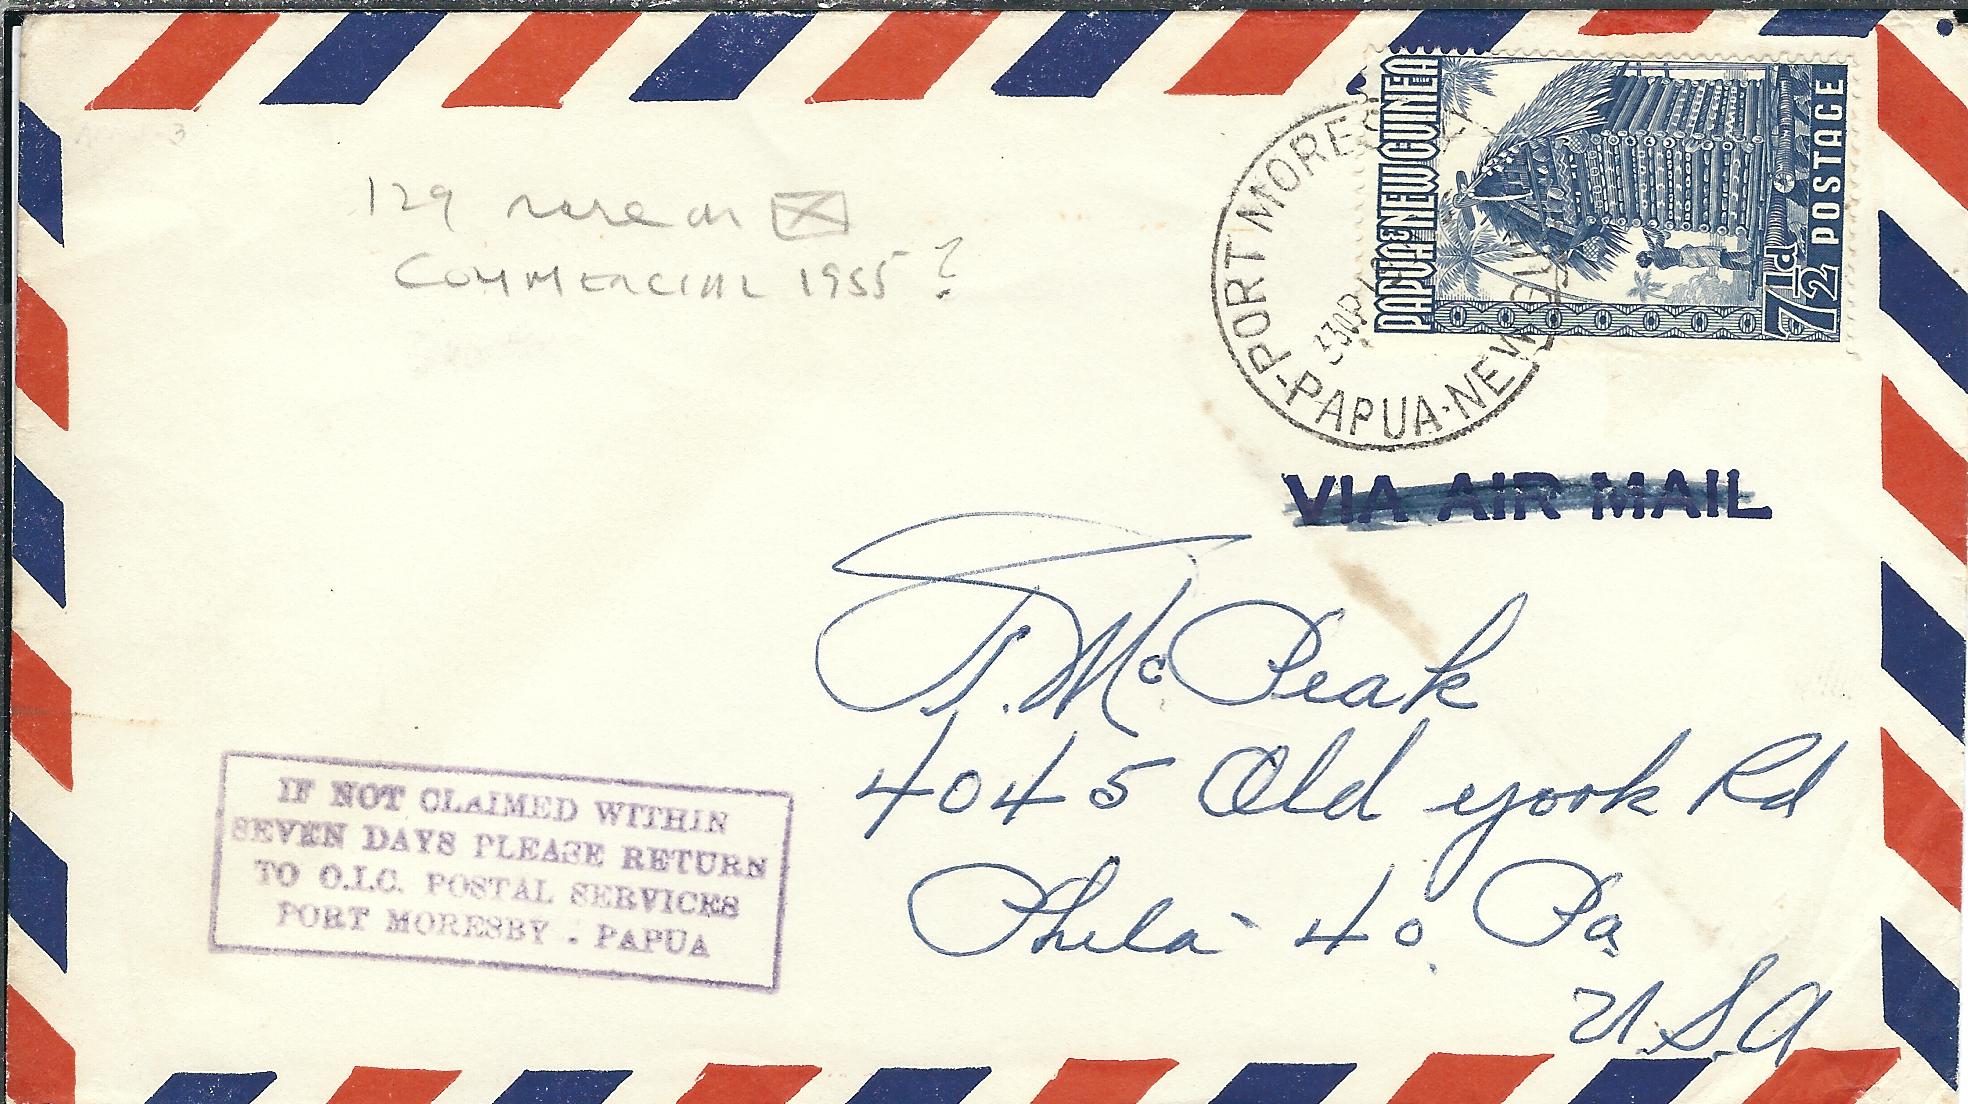 129 rare on
COMMERCIAL 1955?
PAPUA & NEW GUINEA
7½d
POSTAGE
PORT MORESBY
PAPUA·NEW GUI
330P
VIA AIR MAIL
McPeak
4045 Old York Rd
Phila- 40. Pa
U.S.A
IF NOT CLAIMED WITHIN
SEVEN DAYS PLEASE RETURN
TO O.I.C. POSTAL SERVICES
PORT MORESBY . PAPUA